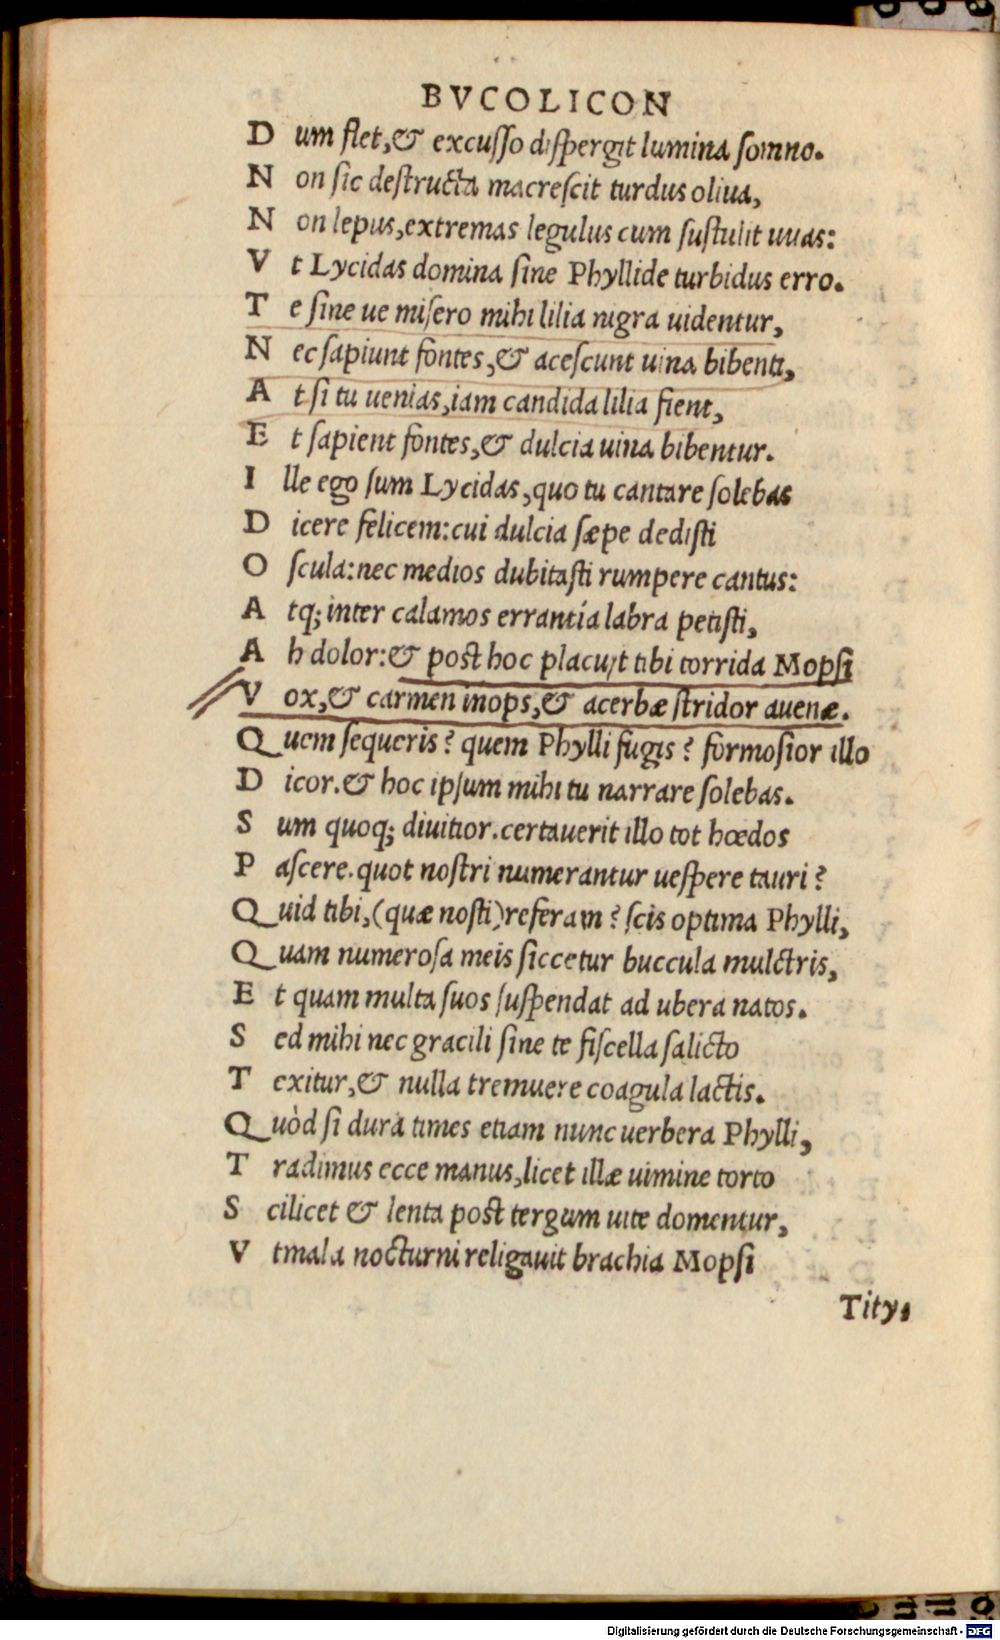 BVCOLICON
D um flet,& excusso dispergit lumina somno.
N on sic destructa macrescit turdus oliua,
N on lepus,extremas legulus cum sustulit uuas:
V t Lycidas domina sine Phyllide turbidus erro.
T e sine ue misero mihi lilia nigra uidentur,
N ec sapiunt fontes,& acescunt uina bibenti,
A t si tu uenias,iam candida lilia fient,
E t sapient fontes,& dulcia uina bibentur.
I lle ego sum Lycidas,quo tu cantare solebas
D icere felicem:cui dulcia sæpe dedisti
O scula:nec medios dubitasti rumpere cantus:
A tq; inter calamos errantia labra petisti,
A h dolor:& post hoc placuit tibi torrida Mopsi
V ox,& carmen inops,& acerbæ stridor auenæ.
Q uem sequeris? quem Phylli fugis? formosior illo
D icor.& hoc ipsum mihi tu narrare solebas.
S um quoq; diuitior.certauerit illo tot hœdos
P ascere.quot nostri numerantur uespere tauri?
Q uid tibi,(quæ nosti)referam? scis optima Phylli,
Q uam numerosa meis siccetur buccula mulctris,
E t quam multa suos suspendat ad ubera natos.
S ed mihi nec gracili sine te fiscella salicto
T exitur,& nulla tremuere coagula lactis.
Q uòd si dura times etiam nunc uerbera Phylli,
T radimus ecce manus,licet illæ uimine torto
S cilicet & lenta post tergum uite domentur,
V tmala nocturni religauit brachia Mopsi
Tity,
Digitalisierung gefördert durch die Deutsche Forschungsgemeinschaft - DFG